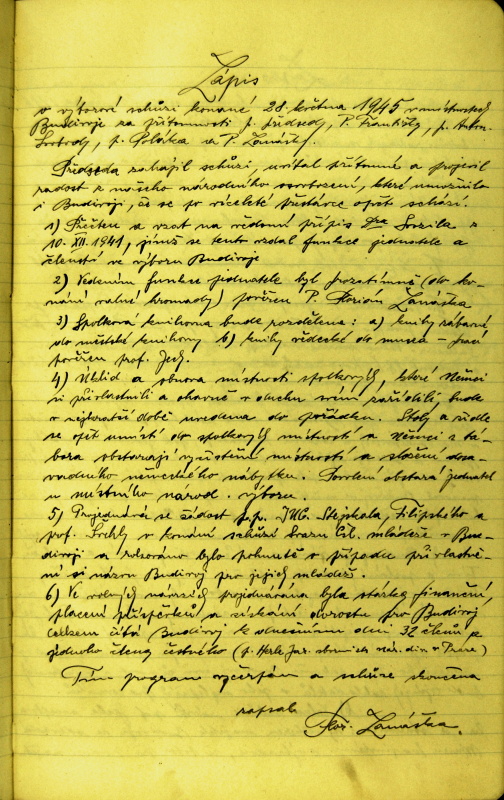 Zápis
o výborové schůzi konané 28. května 1945 v místnostech
Budivoje za přítomnosti p. předsedy, P. Františky, p. Anton.
Svobody, p. Poláka a P. Zanášky.
Předseda zahájil schůzi, uvítal přítomné a projevil
radost z našeho národního osvobození, které umožnilo
i Budivoji, že se po víceleté přestávce opět schází.
1) Přečten a vzat na vědomí přípis Dra Soužila z
10. XII. 1941, jímž se tento vzdal funkce jednatele a
členství ve výboru Budivoje
2) Vedením funkce jednatele byl prozatímně (do ko-
nání valné hromady) pověřen P. Florian Zanáška
3) Spolková knihovna bude rozdělena: a) knihy zábavné
do městské knihovny b) knihy vědecké do musea – prací
pověřen prof. Jech.
4) Úklid a obnova místností spolkových, které Němci
si přivlastnili a ohavně v duchu svém zařídili, bude
v nejkratší době uvedena do pořádku. Stoly a židle
se opět umístí do spolkových místností a Němci z tá-
bora obstarají vyčištění místností a složení dosa-
vadního německého nábytku. Povolení obstará jednatel
u místního národ. výboru.
5) Projednává se žádost p.p. JUC. Stejskala, Filipského a
prof. Šrhly v konání schůzí Svazu čsl. mládeže v Bu-
divoji a odsouzeno bylo pohnutě v případu přivlastně-
ní si názvu Budivoj pro jejich mládež.
6) V volných návrzích projednávána byla otázka finanční,
placení příspěvků a získání dorostu pro Budivoj
Celkem čítá Budivoj k dnešnímu dni 32 členů a
jednoho člena čestného (p. Herle Jar. sborník nár. div. v Praze)
Tím program vyčerpán a schůze skončena
zapsal
Flor. Zanáška.